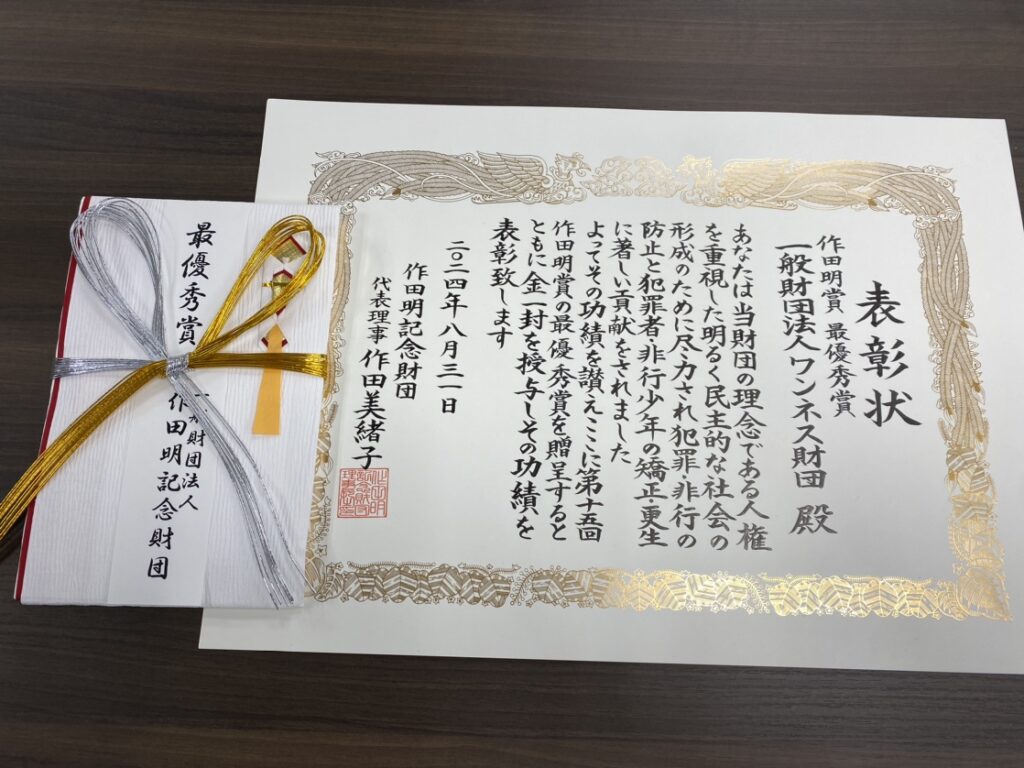 表彰状
作田明賞 最優秀賞
一般財団法人ワンネス財団 殿
あなたは当財団の理念である人権
を重視した明るく民主的な社会の
形成のために尽力され犯罪・非行の
防止と犯罪者・非行少年の矯正・更生
に著しい貢献をされました
よってその功績を讃えここに第十五回
作田明賞の最優秀賞を贈呈すると
ともに金一封を授与しその功績を
表彰致します
二〇二四年八月三一日
作田明記念財団
代表理事 作田美緒子
最優秀賞
財団法人
作田明記念財団